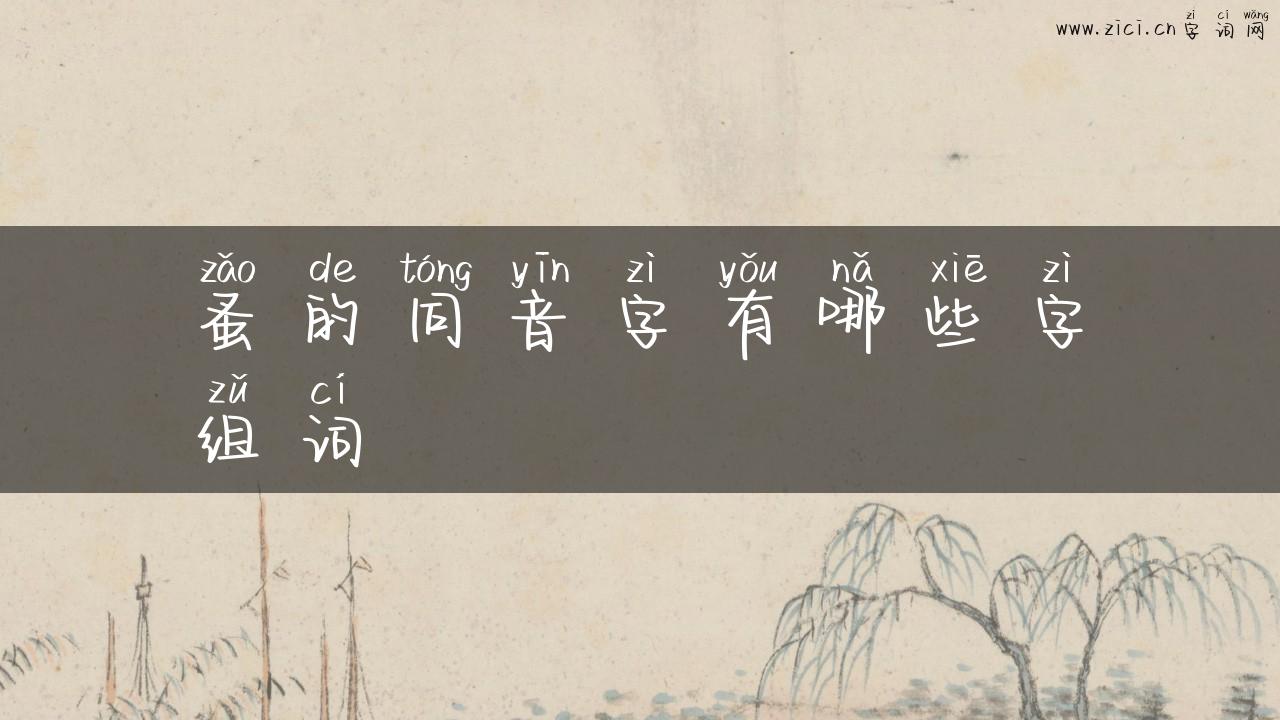 zì cí wǎng
www.zici.cn 字 词 网
zǎo de tóng yīn zì yǒu nǎ xiē zì
蚤 的 同 音 字 有 哪 些 字
zǔ cí
组 词